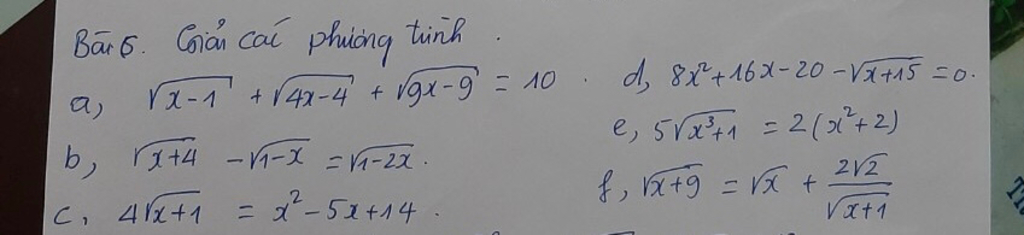 Bài 5. Giải các phương trình.
a, √(x-1) + √(4x-4) + √(9x-9) = 10.
b, √(x+4) - √(1-x) = √(1-2x).
c, 4√(x+1) = x² - 5x + 14.
d, 8x² + 16x - 20 - √(x+15) = 0.
e, 5√(x³+1) = 2(x²+2)
f, √(x+9) = √x + 2√2/√(x+1)